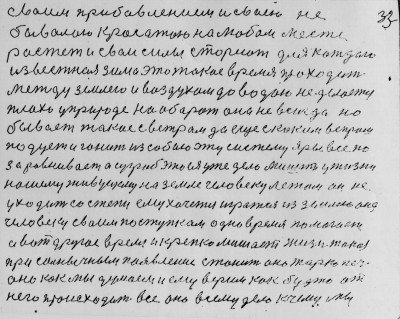 своим прибавлением и своей не 33
бывалою красатою на любом месте
растет и сваи силы сторгает для каждого
известная зима это такое время проходит
между землею и воздухом до водою не делается
плохо у природе на оборот она не всегда но
бывает такое с ветрам да еще с каким ветром
подует и гонит из собою эту систему яры все по
заровнивает а сугробы это я уже дело лишить у жизни
нашему живущему на земле человеку летом он не
уходит со степи ему хочется играться из землею она
человеку своим поступкам одно время помагает
а вот другое время и крепко мишает жизни такая
при солнычным появление станит она жарко неч
оно как мы думаем и ему верим как будто от
него происходит все она всему дело к чему мы